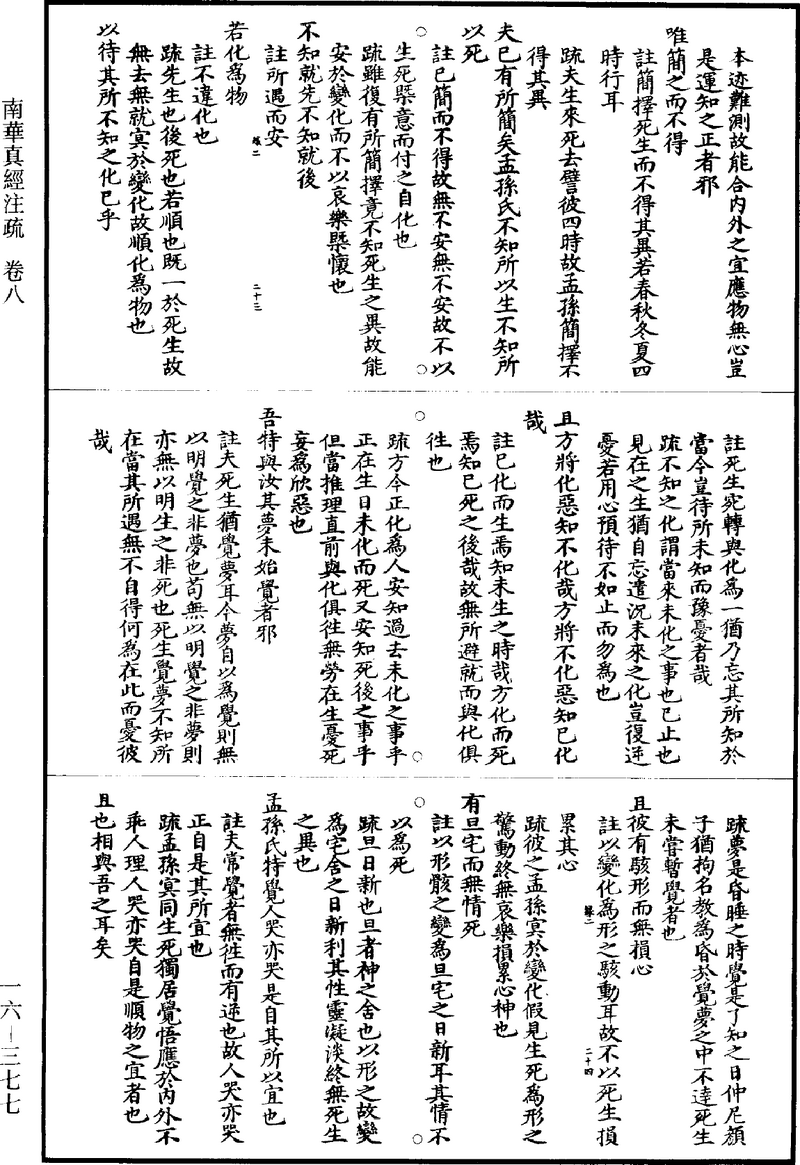 本迹難測故能合內外之宜應物無心豈
是運知之正者邪
唯簡之而不得
註簡擇死生而不得其異若春秋冬夏四
時行耳
疏夫生來死去譬彼四時故孟孫簡擇不
得其異
夫已有所簡矣孟孫氏不知所以生不知所
以死
註已簡而不得故無不安無不安故不以
生死槩意而付之自化也
疏雖復有所簡擇竟不知死生之異故能
安於變化而不以哀樂槩懷也
不知就先不知就後
註所遇而安
二十三
若化為物
註不違化也
疏先生也後死也若順也既一於死生故
無去無就冥於變化故順化為物也
以待其所不知之化已乎
註死生宛轉與化為一猶乃忘其所知於
當今豈待所未知而豫憂者哉
疏不知之化謂當來未化之事也已止也
見在之生猶自忘遣況未來之化豈復逆
憂若用心預待不如止而勿為也
且方將化惡知不化哉方將不化惡知已化
哉
註已化而生焉知未生之時哉方化而死
焉知已死之後哉故無所避就而與化俱
往也
疏方今正化為人安知過去未化之事乎
正在生日未化而死又安知死後之事乎
但當推理直前與化俱往無勞在生憂死
妄為欣惡也
吾特與汝其夢未始覺者邪
註夫死生猶覺夢耳今夢自以為覺則無
以明覺之非夢也苟無以明覺之非夢則
亦無以明生之非死也死生覺夢不知所
在當其所遇無不自得何為在此而憂彼
哉
疏夢是昏睡之時覺是了知之日仲尼顏
子猶拘名教為昏於覺夢之中不達死生
未嘗暫覺者也
且彼有駭形而無損心
註以變化為形之駭動耳故不以死生損
累其心
二十四
疏彼之孟孫冥於變化假見生死為形之
驚動終無哀樂損累心神也
有旦宅而無情死
註以形骸之變為旦宅之日新耳其情不
以為死
疏旦日新也旦者神之舍也以形之故變
為宅舍之日新利其性靈凝淡終無死生
之異也
孟孫氏特覺人哭亦哭是自其所以宜也
註夫常覺者無往而有逆也故人哭亦哭
正自是其所宜也
疏孟孫冥同生死獨居覺悟應於內外不
乖人理人哭亦哭自是順物之宜者也
且也相與吾之耳矣
南華真經注疏 卷八
一六－三七七